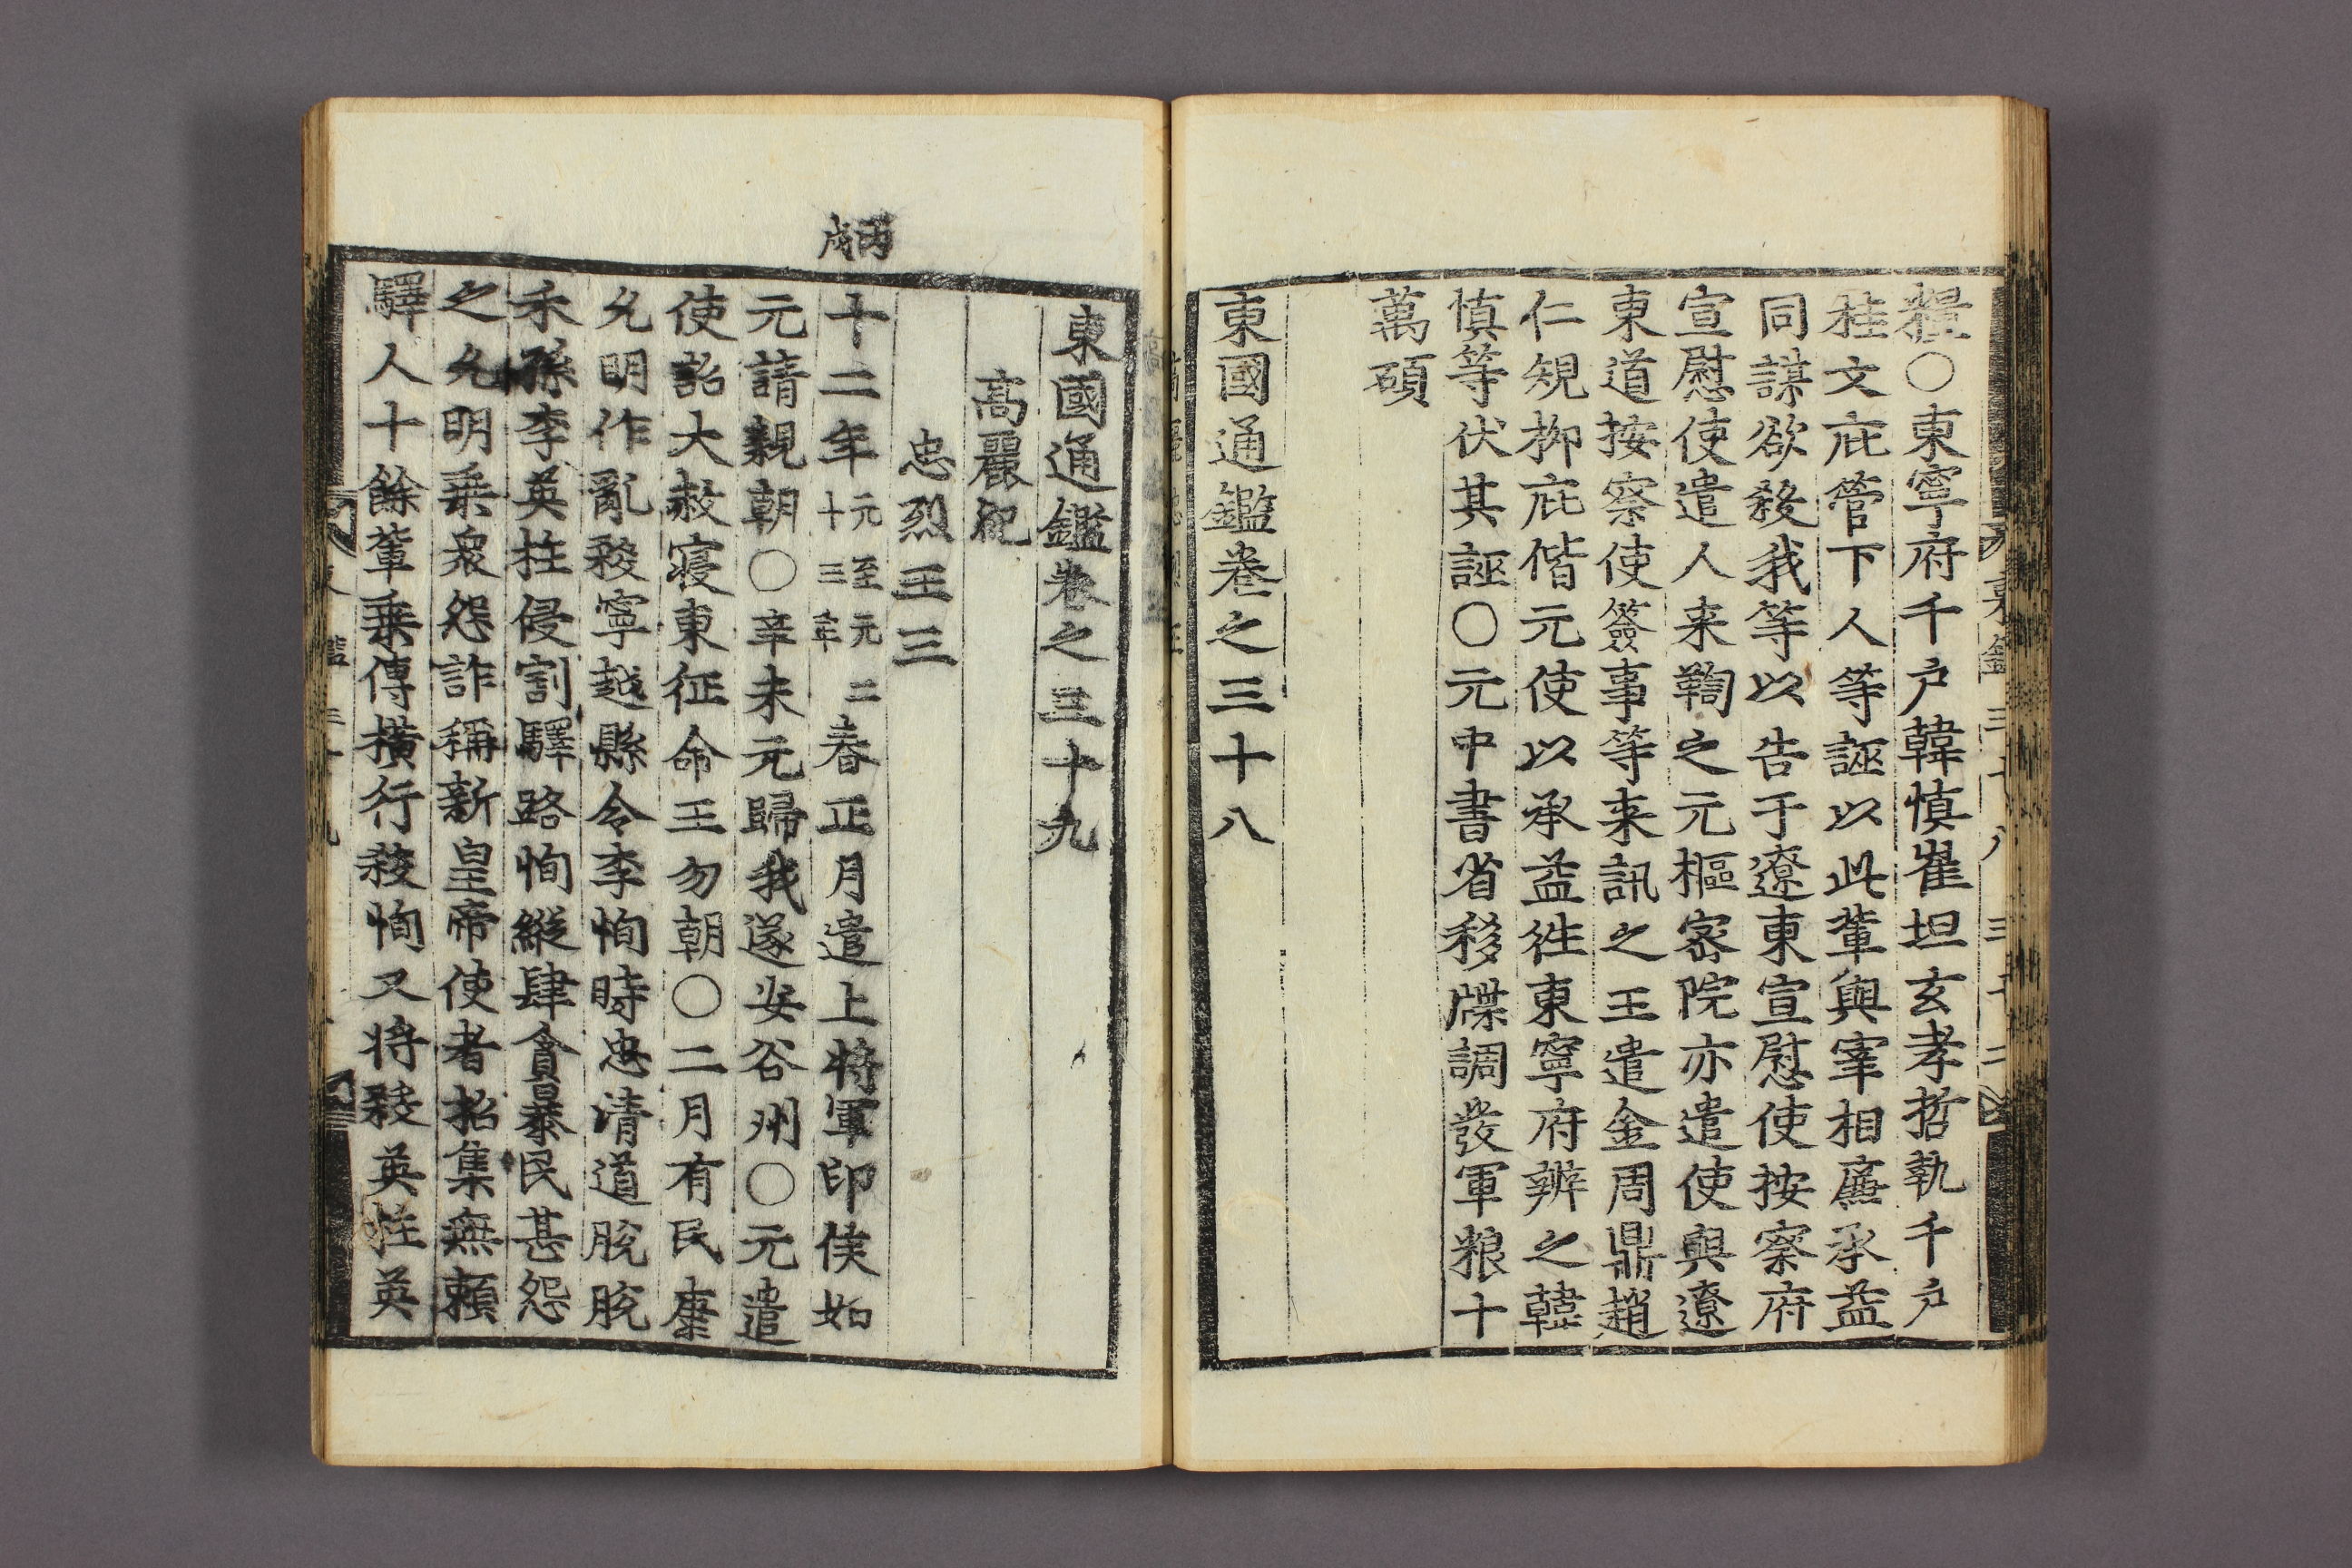 糧○東寧府千戶韓愼崔坦玄孝哲執千戶
桂文庇管下人等誣以此輩與宰相廉承益
同謀欲殺我等以告于遼東宣慰使按察府
宣慰使遣人来鞫之元樞密院亦遣使與遼
東道按察使簽事等来訊之王遣金周鼎趙
仁規柳庇偕元使以承益徃東寧府辨之韓
愼等伏其誣○元中書省移牒調發軍粮十
萬碩
東國通鑑卷之三十八
東國通鑑卷之三十九
高麗紀
忠烈王三
丙戌
十二年元至元二十三年春正月遣上將軍印侯如
元請親朝○辛未元歸我遂安谷州○元遣
使詔大赦寢東征命王勿朝○二月有民康
允明作亂殺寧越縣令李恂時忠清道脫脫
禾孫李英柱侵割驛路恂縱肆貪暴民甚怨
之允明乗衆怨詐稱新皇帝使者招集無賴
驛人十餘輩乗傳橫行殺恂又将殺英柱英